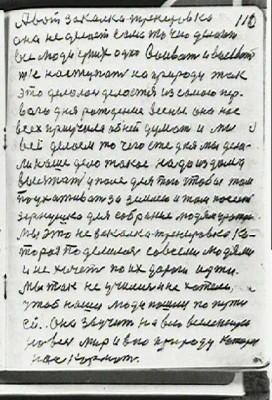 А вот закалка-тренировка 110
она не делает с ли то что делают
все люди у них одно воевать и воевать
т'е наступать на природу так
это делалося делается из самого пер-
вого дня рождение весны она нас
всех приучила об ней думать и мы
в ей делаем то чего сте дня мы дела-
ли наше дело такое надо из дома
выезжать у поле для того чтобы там
поухаживать за землею и там посеять
зернушко для собрание людях
Мы это не закалка-тренировка ко-
торая поделился со всеми людями
и не хочет по их дороги идти.
Мы так не учились и не хотели,
чтоб наши люди пошли по пути
ей. Она звучит на всю вселенную
на весь мир и всю природу которая
нас кормит.